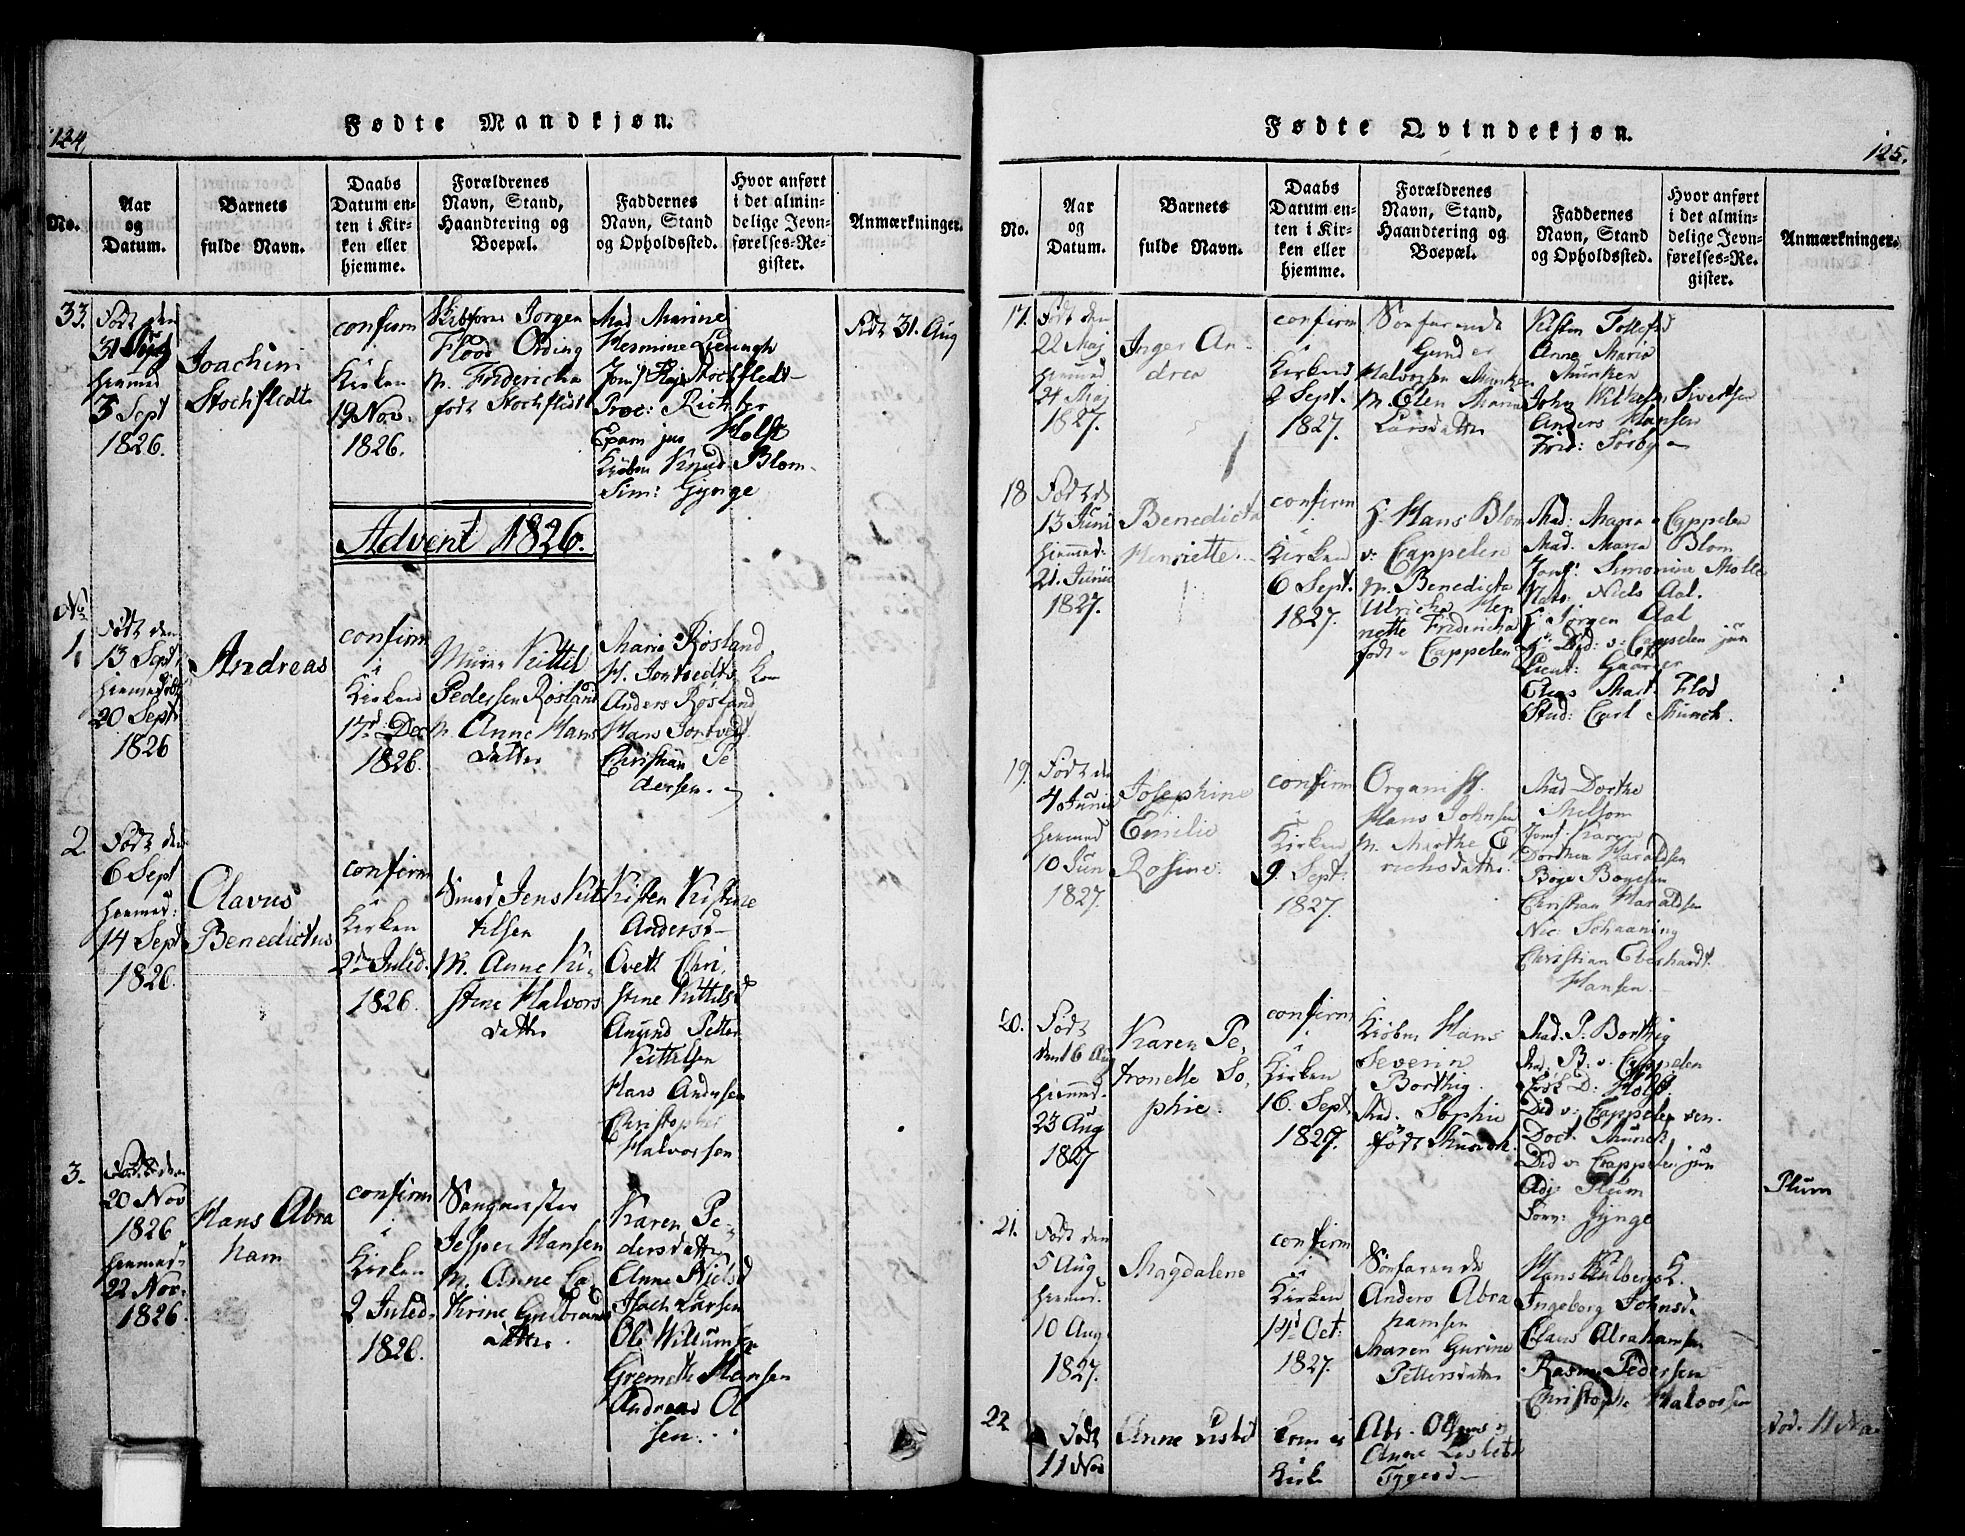 124.
Fødte Mandkjøn.
No.
Aar
og
Datum.
Barnets
fulde Navn.
Daabs
Datum en-
ten i Kir-
ken eller
hjemme.
Forældrenes
Navn, Stand,
Haandtering og
Boepæl.
Faddernes
Navn, Stand
og Opholdssted.
Hvor anført
i det almin-
delige Jevn-
førelses-Re-
gister.
Anmærkninger.
33.
Født den
31 Aug
hiemmed
3 Sept
1826.
Joachim
Stochfledt
confirm
i
Kirken
19 Nov.
1826.
Jørgen
Flood Ording
M. Fridericha
født Stochfledt
Mad Marine
Hesmine
Jomf Stochfledt
Proc: Richter
Exam jur Holst
Kiøbm Knud Blom
Sim: Gjynge
Født 31. Aug
Advent 1826.
No.
1.
Født den
13 Sept
hiemmedøbt
20 Sept
1826
Andreas
confirm
i
Kirken
17d Dec
1826.
Murer Kittil
Pedersen Røsland
M. Anne Hans
datter
Marie Røsland
H. Jontvedts Kon
Anders Røsland
Hans Jontvedt
Christian Pe
dersen.
2.
Født den
6 Sept
hiemmed:
14 Sept
1826.
Olavus
Benedictus
confirm
i
Kirken
2d Juled.
1826.
Smed Jens Kit
tilsen
M. Anne Ki-
stine Halvors
datter
Kisten Kistine
Andersd
Chri-
stine Kittilsd
Amund Petter
Kittelsen
Hans Andersen
Christopher
Halvorsen
3.
Født den
20 Nov
1826
hiemmed:
22 Nov.
1826.
Hans Abra
ham
confirm
i
Kirken
2 Juled.
1826.
Sangmester
Jesper Hansen
M. Anne Ca
thrine Gulbrands
datter
Karen Pe-
dersdatter
Anne Nielsd
Isach Larsen
Ole Willumsen
Hansen
Andreas Ol
sen.
125.
Fødte Qvindekjøn.
No.
Aar
og
Datum.
Barnets
fulde Navn.
Daabs
Datum en-
ten i Kir-
ken eller
hjemme.
Forældrenes
Navn, Stand,
Haandtering og
Boepæl.
Faddernes
Navn, Stand
og Opholdssted.
Hvor anført
i det almin-
delige Jevn-
førelses-Re-
gister.
Anmærkninger.
17.
Født den
22 Maj
hiemmed
24 Maj
1827.
Inger An-
drea
confirm
i
Kirken
2 Sept.
1827.
Søefarende
Gunder
Halvorsen Munken
M. Elen Maria
Larsdatter
Kisten Tollefsd
Anne Maria
Munken
John Sivertsen
Anders Hansen
Frid: Sørbye
18
Født d
13 Juni
hiemmed:
21. Juni
1827.
Benedicta
Henriette.
confirm
i
Kirken
6 Sept.
1827.
H. Hans Blom
v: Cappelen
M. Benedicta
Ulricha Hen
riette Fridericha
født Cappelen
Mad: Maria Cappelen
Mad. Maria Blom
Jomf: Simonine Møller
Niels Aal.
H. Jørgen Aal
H. Did: v: Cappelen jun
Lieut: Gaarder
Elias Mart. Flod
Stud: Carl Munch.
19.
Født den
4 Juni
hiemmed
10 Jun
1827.
Josephine
Emilie
Rosine.
confirm
i
Kirken
9. Sept.
1827.
Organist
Hans Johnsen
M. Marthe E
richsdatter
Mad Dorthe
Nilsom
Jomf: Karen
Dorthea Haraldsen
Boye Boyesen
Christian Haraldsen
Nic Schaaning
Christian Eberhardt
Hansen.
20.
Født
den 16 Aug
hiemmed.
23 Aug
1827
Karen Pe-
tronelle So-
phie.
confirm
i
Kirken
16. Sept.
1827.
Kiøbm Hans
Severin
Borthig.
Mad. Sophie
født Munch.
Mad. P: Borthig
Mad. B. v. Cappelen
D: Holst.
Did v: Cappelen sen.
Doct. Munch
Did v: Cappelen jun
Adj: Plum
Sorn: Gjynge
Plum
21.
Født den
5 Aug
hiemmed.
10 Aug
1827.
Magdalene
confirm
i
Kirken
14d Oct:
1827.
Søefarende
Anders Abra
hamsen
Maren Gurine
Pettersdatter
Hans Kulbergs K.
Ingeborg Johnsd.
Claus Abrahamsen
Rasmus Pedersen
Christophe Halvorsen
22
Født
11 Nov
Anne Lisbet
Kirk
Abr. Olsens
Anne Lisbet
Tygesd
Fød. 11 Nov